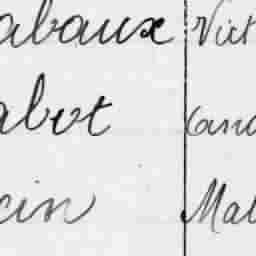 abaux Vict
abot Cano
cin Mat